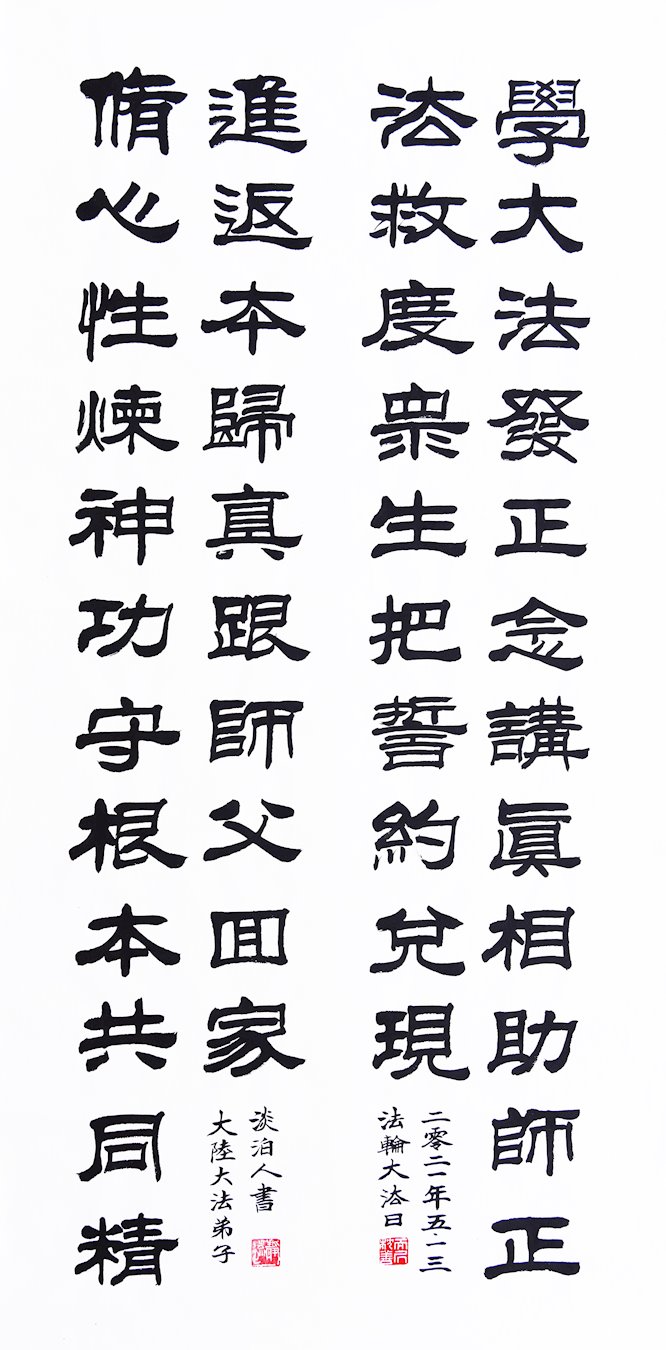 學大法發正念講眞相助師正
法救度衆生把誓約兌現
二零二一年五·一三
法輪大法日
脩心性煉神功守根本共同精
進返本歸真跟師父囬家
大陸大法弟子
淡泊人書